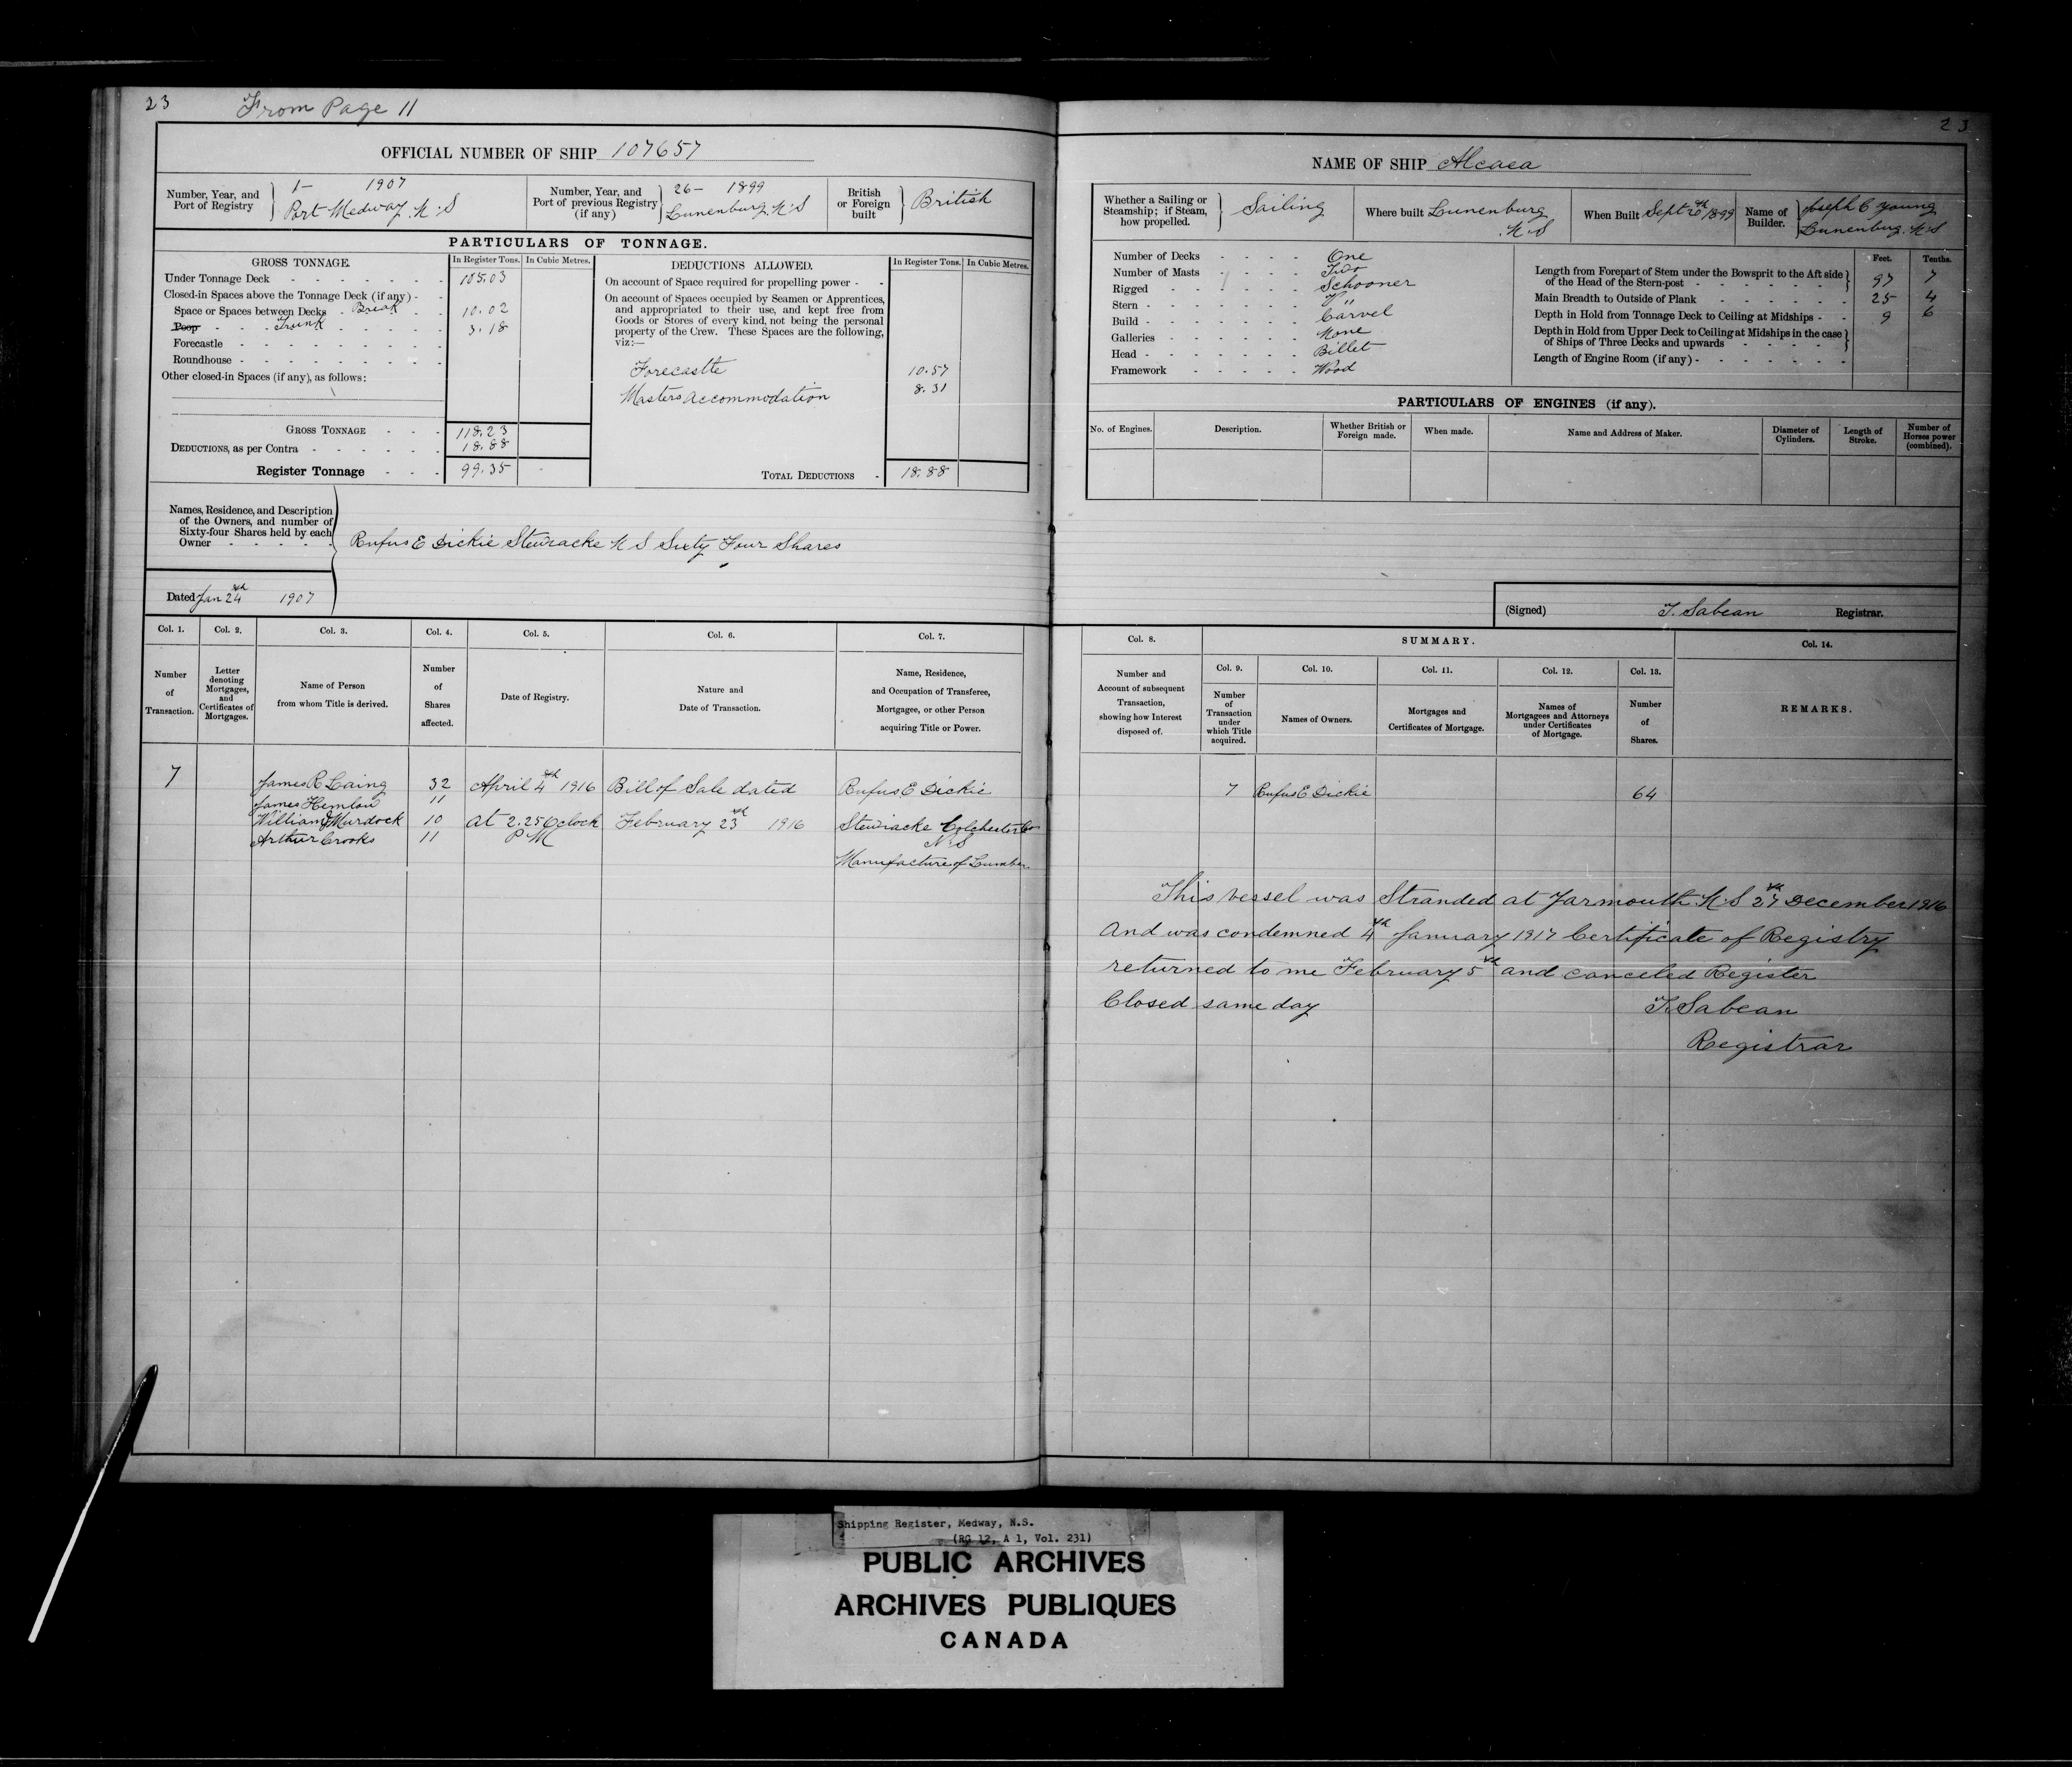 23
From Page 11
OFFICIAL NUMBER OF SHIP 107657
Number, Year, and Port of Registry
1– 1907
Port Medway. N.S
Number, Year, and Port of previous Registry (if any)
26– 1899
Lunenburg. N.S
British or Foreign built
British
PARTICULARS OF TONNAGE.
GROSS TONNAGE.
In Register Tons.
In Cubic Metres.
Under Tonnage Deck 105.03
Closed-in Spaces above the Tonnage Deck (if any)
Space or Spaces between Decks Break 10.02
Poop Trunk 3.18
Forecastle
Roundhouse
Other closed-in Spaces (if any), as follows:
GROSS TONNAGE 118.23
DEDUCTIONS, as per Contra 18.88
Register Tonnage 99.35
DEDUCTIONS ALLOWED.
In Register Tons.
In Cubic Metres.
On account of Space required for propelling power
On account of Spaces occupied by Seamen or Apprentices,
and appropriated to their use, and kept free from
Goods or Stores of every kind, not being the personal
property of the Crew. These Spaces are the following,
viz:—
Forecastle 10.57
Masters Accommodation 8.31
TOTAL DEDUCTIONS 18.88
Names, Residence, and Description
of the Owners, and number of
Sixty-four Shares held by each
Owner
Rufus E Dickie Stewiacke N S Sixty Four Shares
Dated Jan 24th 1907
Col. 1.
Number of Transaction.
Col. 2.
Letter denoting Mortgages, and Certificates of Mortgages.
Col. 3.
Name of Person from whom Title is derived.
Col. 4.
Number of Shares affected.
Col. 5.
Date of Registry.
Col. 6.
Nature and Date of Transaction.
Col. 7.
Name, Residence, and Occupation of Transferee, Mortgagee, or other Person acquiring Title or Power.
7 James R Laing 32 April 4th 1916 Bill of Sale dated Rufus E Dickie
James Hemlow 11
William Murdock 10 at 2.25 Oclock February 23rd 1916 Stewiacke Colchester Co
Arthur Crooks 11 P M N.S
Manufacture of Lumber
23
NAME OF SHIP Alcaea
Whether a Sailing or Steamship; if Steam, how propelled.
Sailing
Where built Lunenburg
N.S
When Built Sept 20th 1899
Name of Builder.
Joseph C Young
Lunenburg. N.S
Number of Decks One
Number of Masts Two
Rigged Schooner
Stern "
Build Carvel
Galleries None
Head Billet
Framework Wood
Feet. Tenths.
Length from Forepart of Stem under the Bowsprit to the Aft side of the Head of the Stern-post 97 7
Main Breadth to Outside of Plank 25 4
Depth in Hold from Tonnage Deck to Ceiling at Midships 9 6
Depth in Hold from Upper Deck to Ceiling at Midships in the case of Ships of Three Decks and upwards
Length of Engine Room (if any)
PARTICULARS OF ENGINES (if any).
No. of Engines.
Description.
Whether British or Foreign made.
When made.
Name and Address of Maker.
Diameter of Cylinders.
Length of Stroke.
Number of Horses power (combined).
(Signed) T. Sabean Registrar.
Col. 8.
Number and Account of subsequent Transaction, showing how Interest disposed of.
SUMMARY.
Col. 9.
Number of Transaction under which Title acquired.
Col. 10.
Names of Owners.
Col. 11.
Mortgages and Certificates of Mortgage.
Col. 12.
Names of Mortgagees and Attorneys under Certificates of Mortgage.
Col. 13.
Number of Shares.
Col. 14.
REMARKS.
7 Rufus E Dickie 64
This vessel was Stranded at Yarmouth N.S 27th December 1916
And was condemned 4th January 1917 Certificate of Registry
returned to me February 5th and canceled Register
Closed same day T. Sabean
Registrar
Shipping Register, Medway, N.S.
(RG 12, A 1, Vol. 231)
PUBLIC ARCHIVES
ARCHIVES PUBLIQUES
CANADA